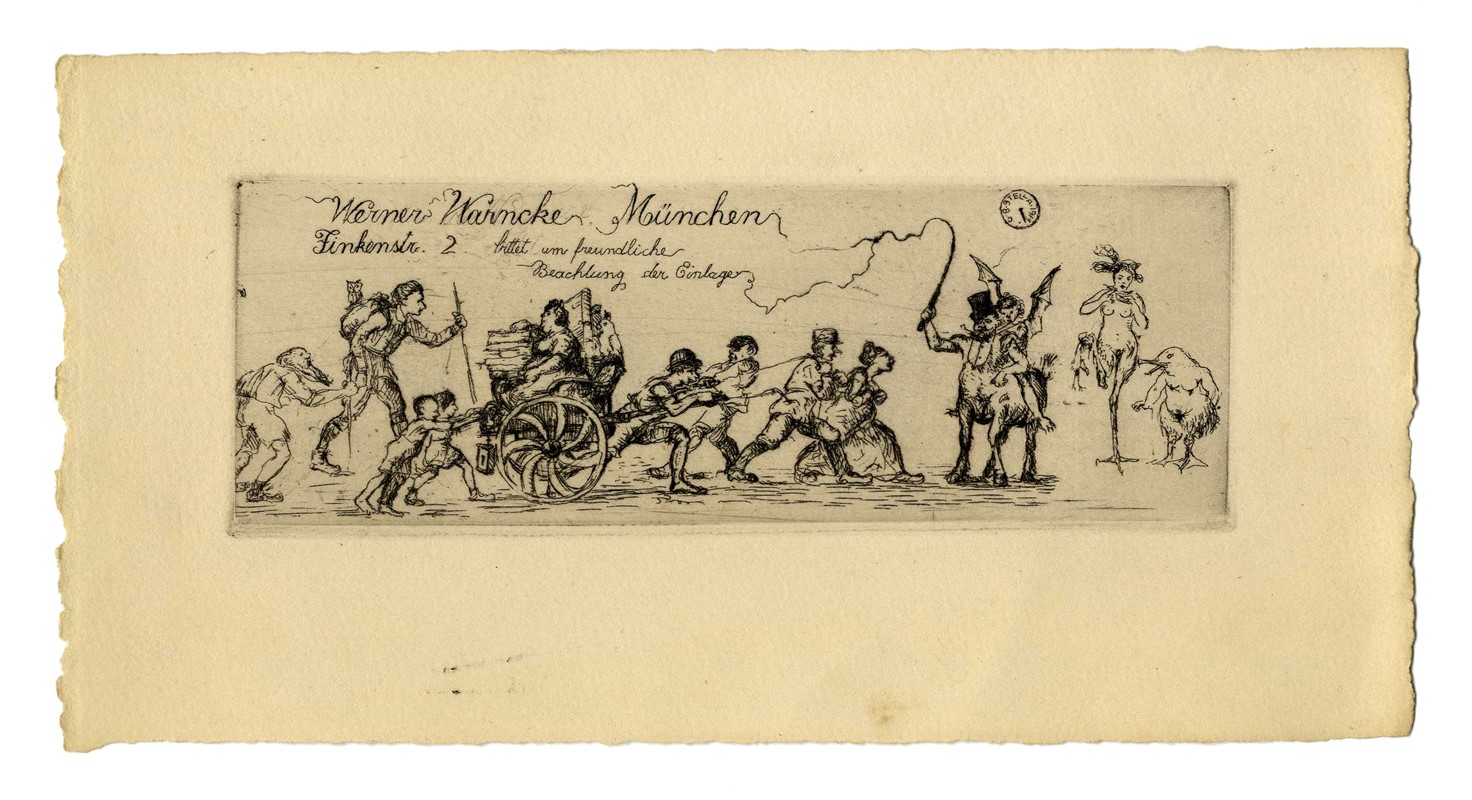 Werner Warncke. München
Finkenstr. 2. bittet um freundliche
Beachtung der Einlage